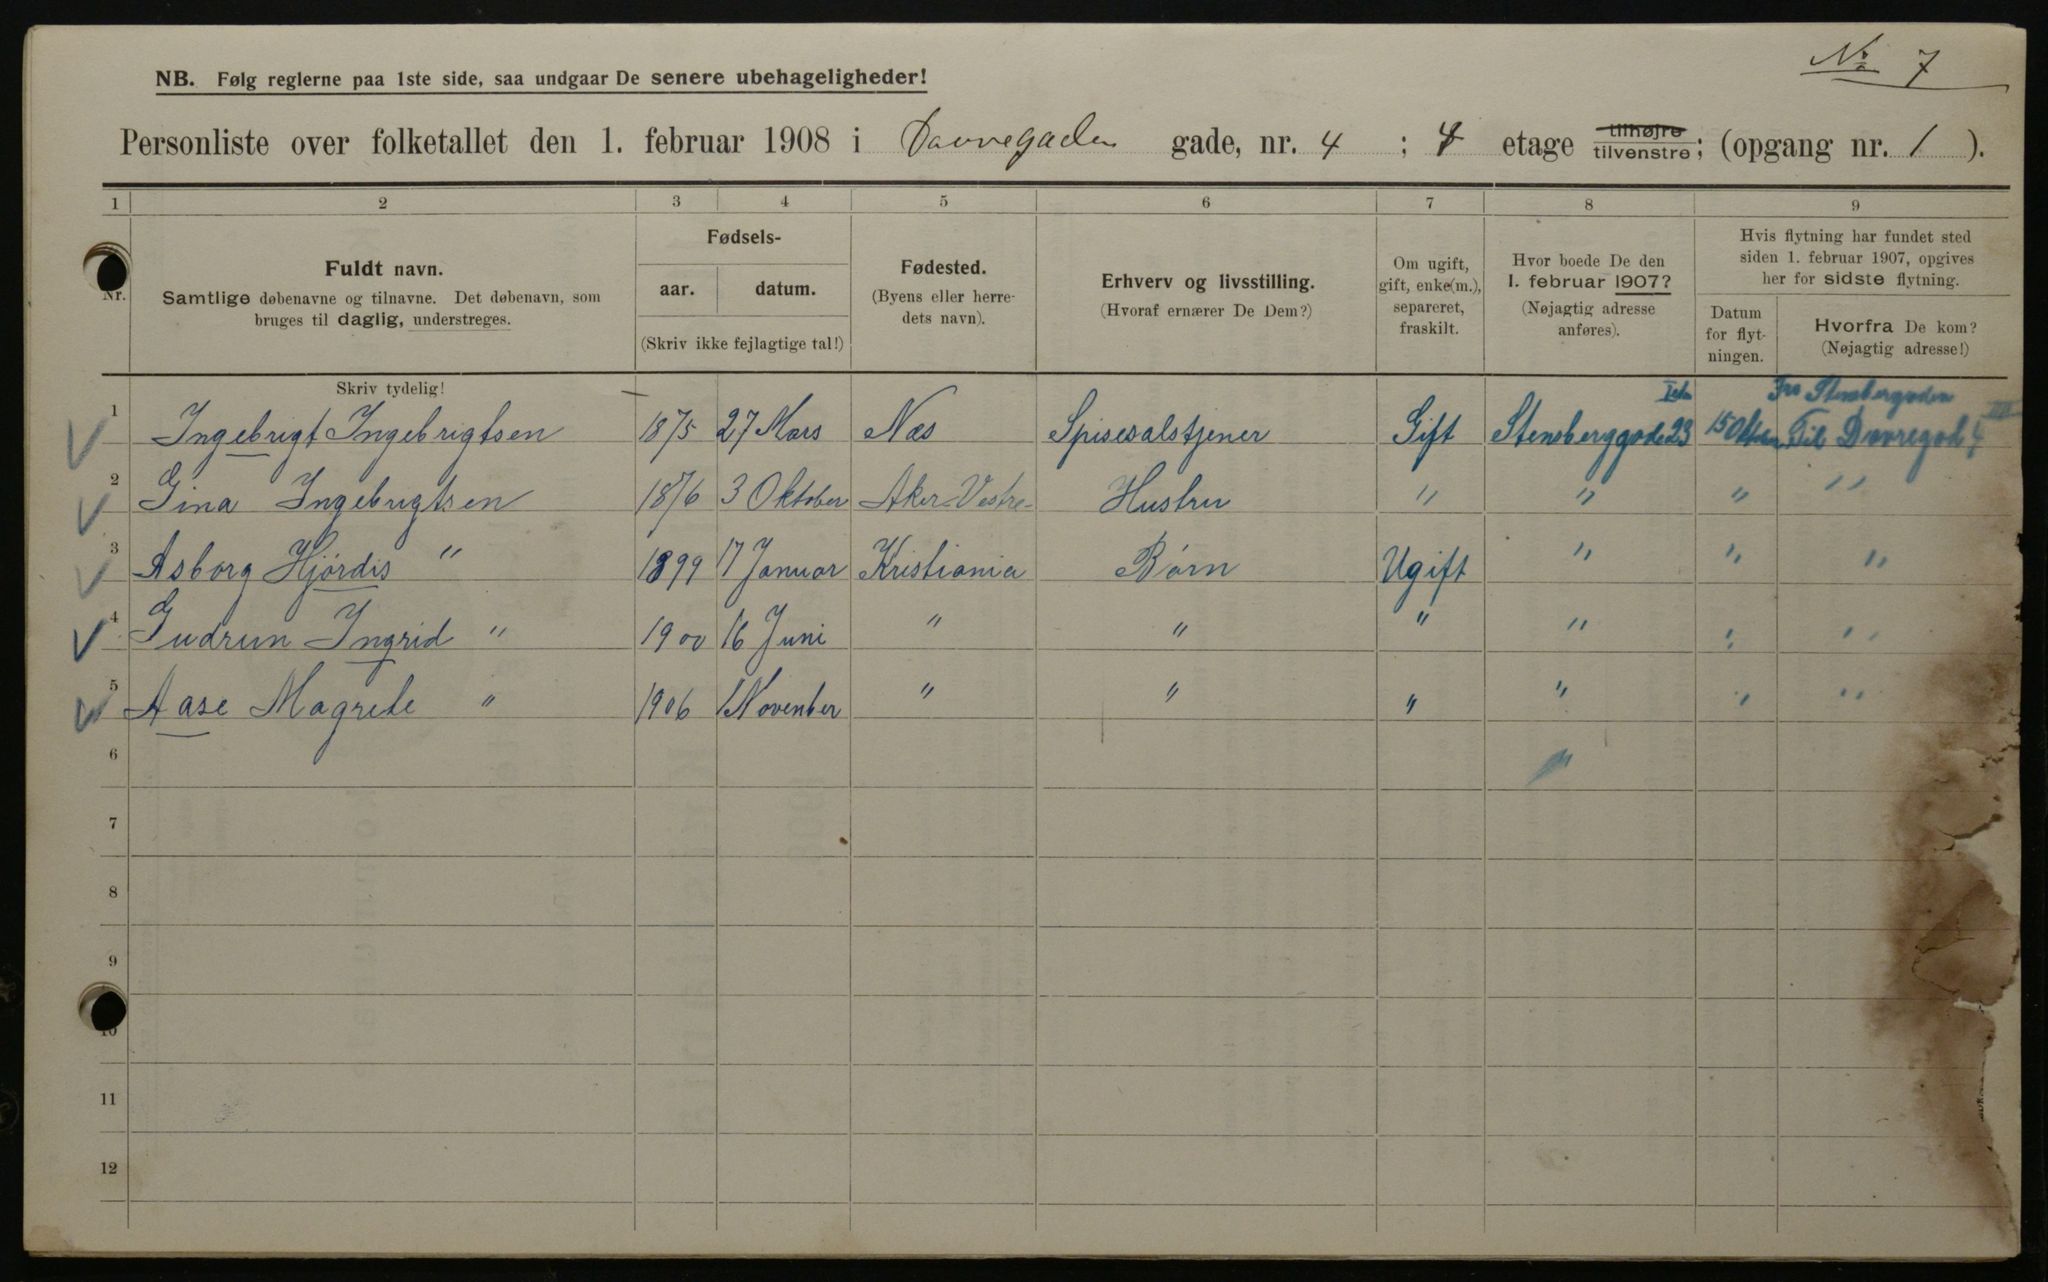 No 7
NB. Følg reglerne paa 1ste side, saa undgaar De senere ubehageligheder!
Personliste over folketallet den 1. februar 1908 i Dovregaden gade, nr. 4 ; 4 etage tilhøjre tilvenstre; (opgang nr. 1 ).
1 2 3 4 5 6 7 8 9
Nr.
Fuldt navn.
Samtlige døbenavne og tilnavne. Det døbenavn, som
bruges til daglig, understreges.
Fødsels-
aar. datum.
(Skriv ikke fejlagtige tal!)
Fødested.
(Byens eller herre-
dets navn).
Erhverv og livsstilling.
(Hvoraf ernærer De Dem?)
Om ugift,
gift, enke(m.),
separeret,
fraskilt.
Hvor boede De den
1. februar 1907?
(Nøjagtig adresse
anføres).
Hvis flytning har fundet sted
siden 1. februar 1907, opgives
her for sidste flytning.
Datum
for flyt-
ningen.
Hvorfra De kom?
(Nøjagtig adresse!)
Skriv tydelig!
Fra Stensbergaden
1 Ingebrigt Ingebrigtsen 1875 27 Mars Næs Spisesalstjener Gift Stensberggade 23 15 Til Dovregad 4 III
2 Gina Ingebrigtsen 1876 3 Oktober Aker-Vestre- Hustru " " " "
3 Asborg Hjørdis " 1899 17 Januar Kristiania Børn Ugift " " "
4 Gudrun Ingrid " 1900 16 Juni " " " " " "
5 Aase Magrete " 1906 1 November " " " " " "
6 "
7
8
9
10
11
12